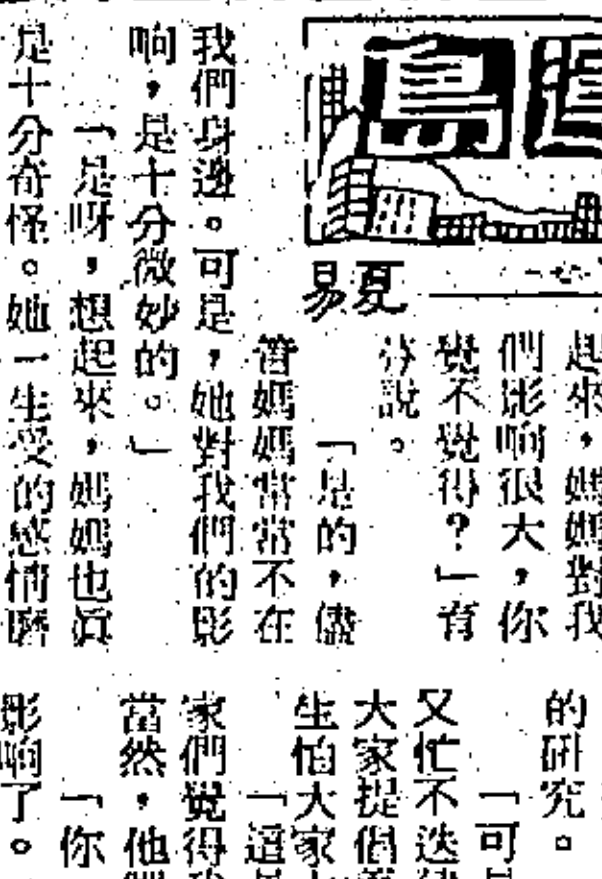 鳥
夏易
起來，媽媽對我
們影响很大，你
覺不覺得？」育
芬說。
「是的，儘
管媽媽常常不在
我們身邊。可是，她對我們的影
响，是十分微妙的。」
「是呀，想起來，媽媽也眞
是十分奇怪。她一生受的感情磨
的研究。
「可
又忙不迭
大家提倡
生怕大家
「這
家們覺得
當然，他
「你
影响了。